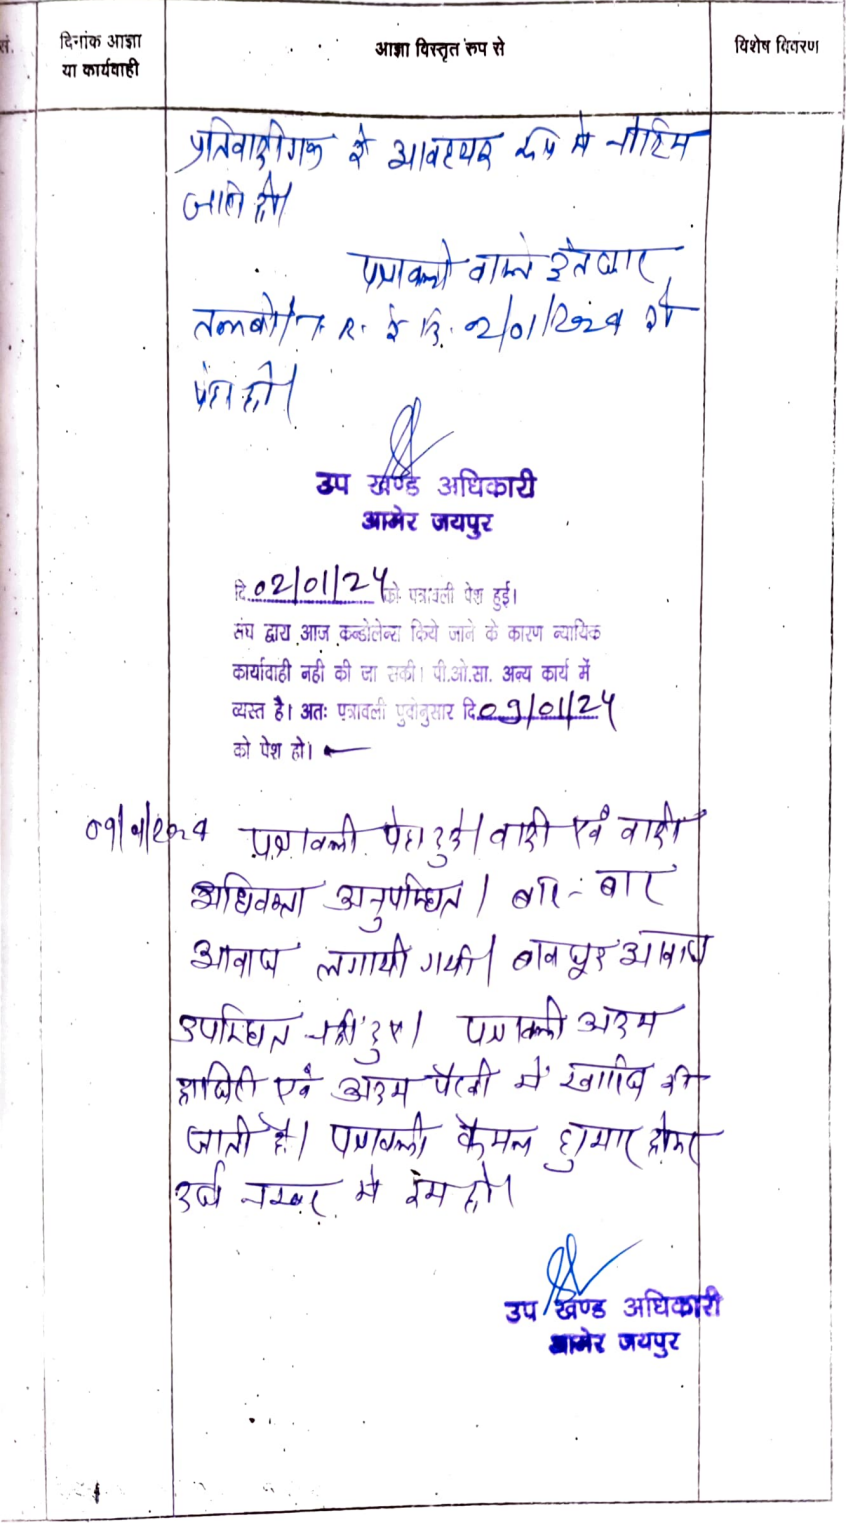 सं.
दिनांक आज्ञा
या कार्यवाही
आज्ञा विस्तृत रूप से
विशेष विवरण
प्रतिवादीगण को आवश्यक रूप से नोटिस
जारी हो।
पत्रावली वास्ते इंतजार
तलबी/T.R. के दि. 02/01/2024 को
पेश हो।
उप खण्ड अधिकारी
आमेर जयपुर
दि. 02/01/24 को पत्रावली पेश हुई।
संघ द्वारा आज कन्डोलेन्स किये जाने के कारण न्यायिक
कार्यवाही नही की जा सकी। पी.ओ.सा. अन्य कार्य में
व्यस्त है। अतः पत्रावली पुर्वानुसार दि. 09/01/24
को पेश हो।
09/01/2024 पत्रावली पेश हुई। वादी एवं वादी
अधिवक्ता अनुपस्थित। बार-बार
आवाज लगायी गयी। बावजूद आवाज
उपस्थित नहीं हुए। पत्रावली अदम
हाजिरी एवं अदम पैरवी में खारिज की
जाती है। पत्रावली फैसल शुमार होकर
दर्ज नम्बर से कम हो।
उप खण्ड अधिकारी
आमेर जयपुर